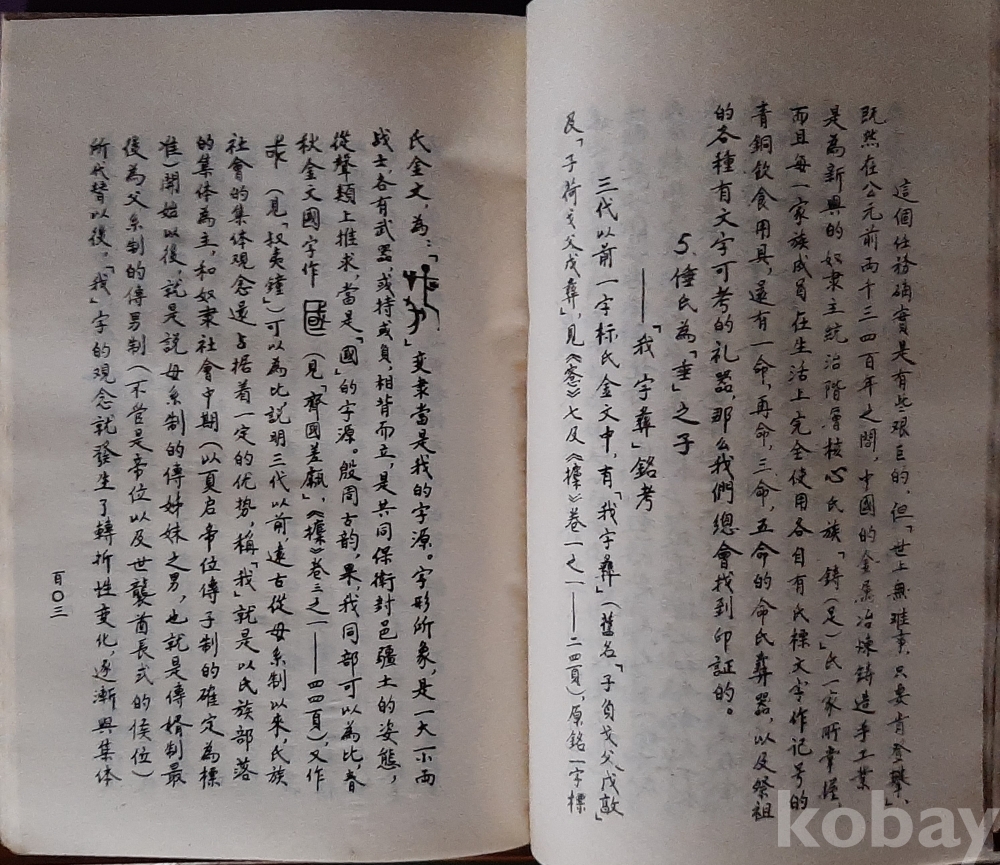 這個任務確實是有些艰巨的，但「世上無难事，只要肯登攀」、
既然在公元前两千三四百年之間，中國的金屬冶煉鋳造手工業
是為新興的奴隶主統治階層核心氏族「鋳（足）」氏一家所掌握
而且每一家族成員在生活上完全使用各自有氏標文字作记号的
青銅飲食用具，還有一命，再命，三命，五命的命氏彝器，以及祭祖
的各種有文字可考的礼器，那么我們總會找到印証的。
5、倕氏為「垂」之子
——「我字彝」銘考
三代以前一字标氏金文中，有「我字彝」（舊名「子負戈父戊敦」
及「子荷戈父戊彝」，見《愙》七及《攈》卷一之一——二四頁），原銘一字標
氏金文，為：「 」変隶當是我的字源。字形所象，是一大一小两
战士，各有武器，或持或負，相背而立，是共同保衛封邑疆土的姿態，
從聲類上推求，當是「國」的字源。殷周古韵，果我同部可以為比，春
秋金文國字作 （見「齊國差𦉜」，《攈》卷三之一——四四頁），又作
（見「叔夷鐘」）可以為比説明三代以前，遠古從母系制以來氏族
社會的集体观念還占据着一定的优势，稱「我」就是以氏族部落
的集体為主，和奴隶社會中期（以夏启帝位傳子制的確定為標
准）開始以後，就是説母系制的傳姊妹之男，也就是傳婿制最
後為父系制的傳男制（不管是帝位以及世襲酋長式的侯位）
所代替以後，「我」字的观念就發生了轉折性变化，逐漸與集体
百〇三
kobay